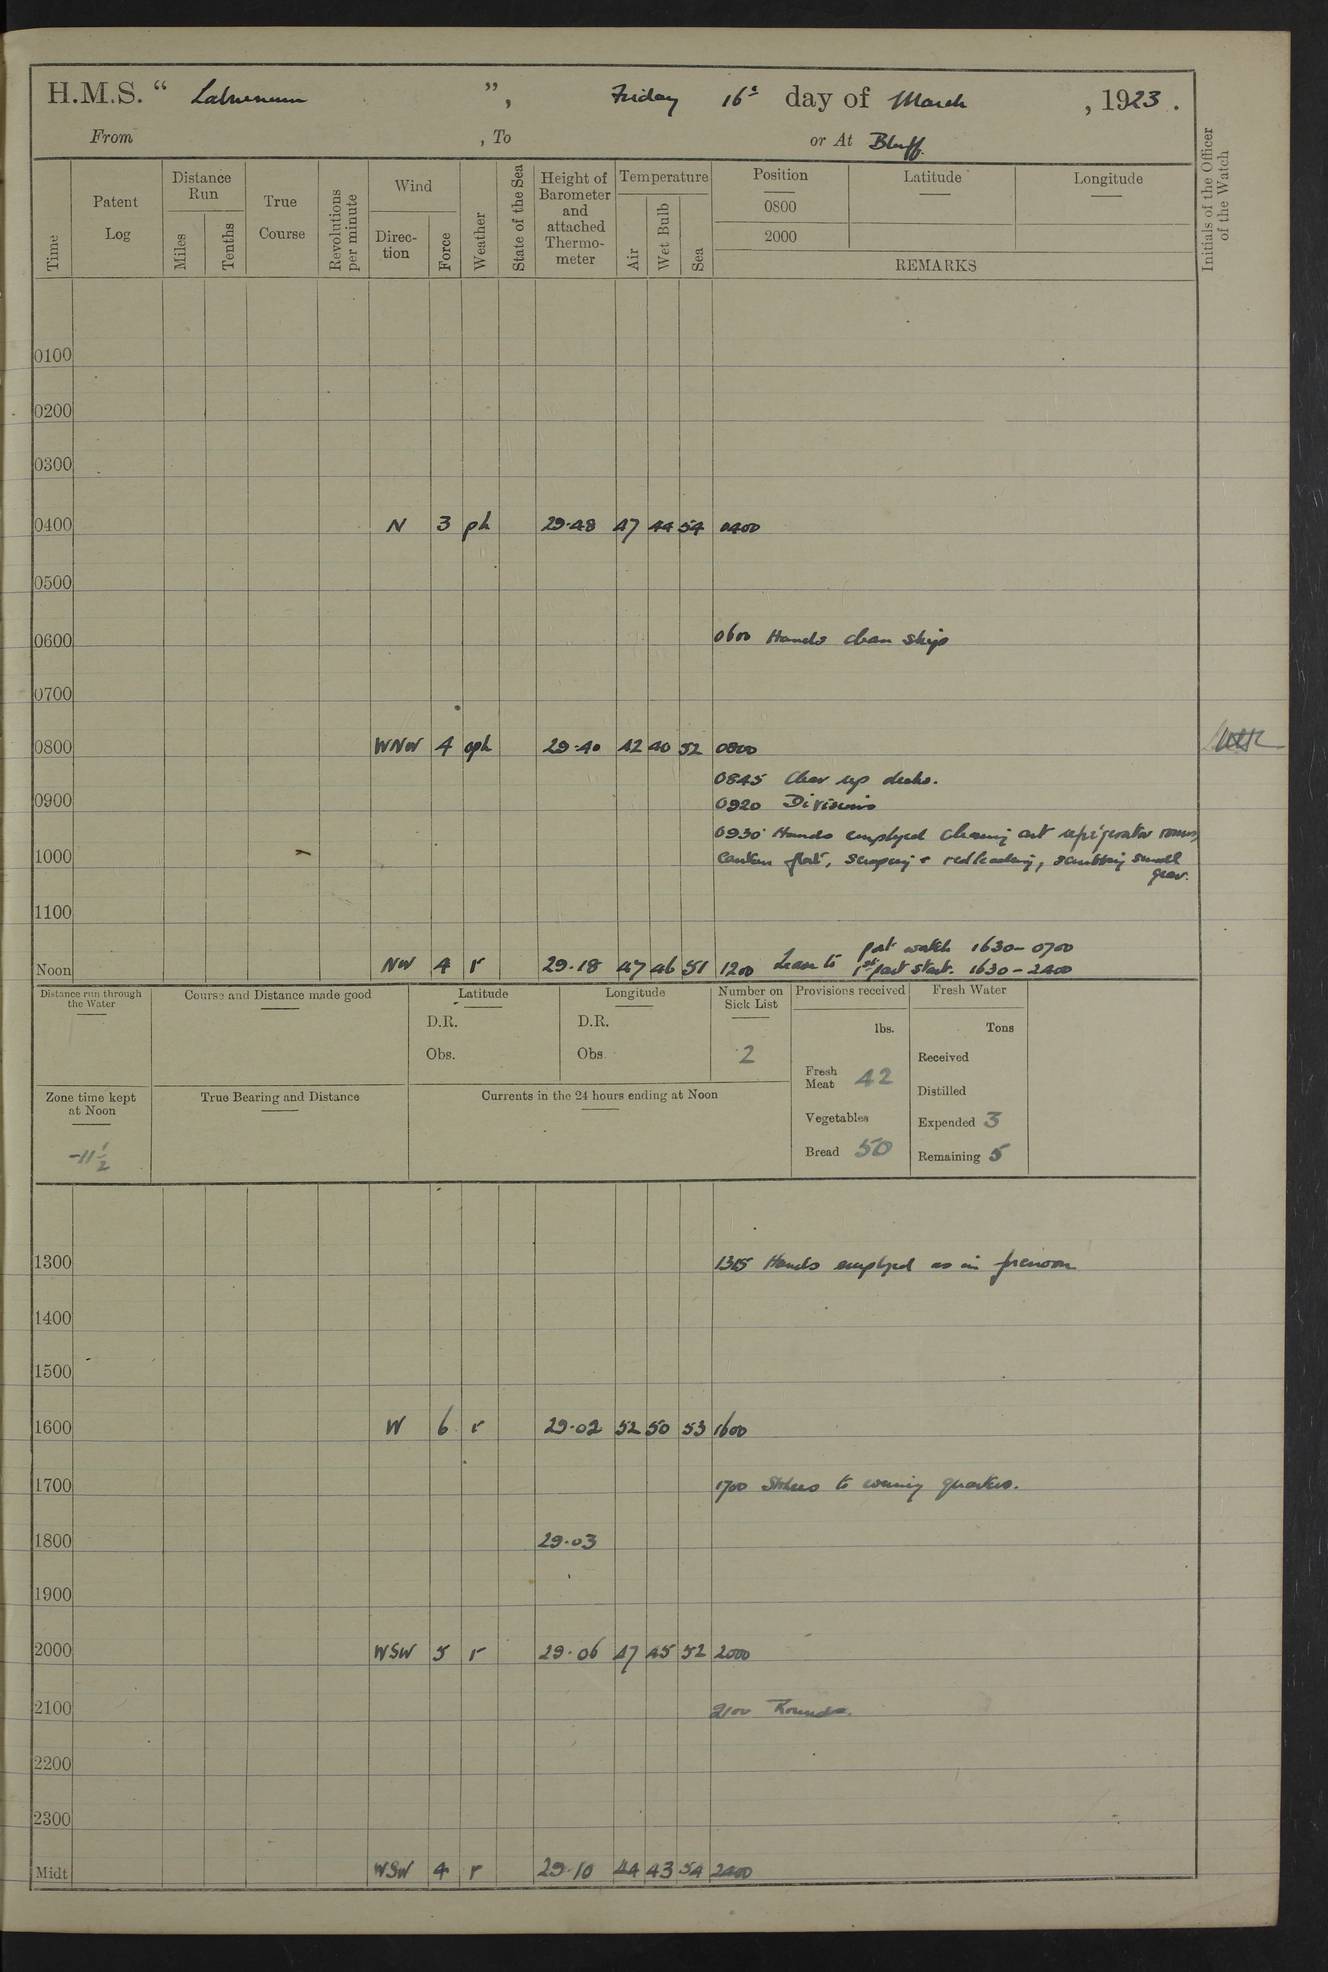 H.M.S. “ Laburnum ”, Friday 16th day of March , 1923 .
From , To or At Bluff.
Time
Patent Log
Distance Run
Miles
Tenths
True Course
Revolutions per minute
Wind
Direc-tion
Force
Weather
State of the Sea
Height of Barometer and attached Thermo-meter
Temperature
Air
Wet Bulb
Sea
Position
0800
2000
Latitude
Longitude
REMARKS
Initials of the Officer of the Watch
0100
0200
0300
0400 N 3 ph 29.48 47 44 54 0400
0500
0600 0600 Hands clean ship
0700
0800 WNW 4 oph 29.40 42 40 52 0800
0845 Clear up decks.
0900 0920 Divisions
0930 Hands employed cleaning out refrigerator rooms,
1000 canteen flat, scraping + redleading, scrubbing small
gear.
1100
port watch 1630 – 0700
Noon NW 4 r 29.18 47 46 51 1200 Leave to 1st part starb. 1630 – 2400
Distance run through the Water
Course and Distance made good
Latitude
D.R.
Obs.
Longitude
D.R.
Obs.
Number on Sick List
2
Provisions received
lbs.
Fresh Meat 42
Vegetables
Bread 50
Fresh Water
Tons
Received
Distilled
Expended 3
Remaining 5
Zone time kept at Noon
-11 1/2
True Bearing and Distance
Currents in the 24 hours ending at Noon
1300 1315 Hands employed as in forenoon
1400
1500
1600 W 6 r 29.02 52 50 53 1600
1700 1700 Stokers to evening quarters.
1800 29.03
1900
2000 WSW 5 r 29.06 47 45 52 2000
2100 2100 Rounds.
2200
2300
Midt WSW 4 r 29.10 44 43 54 2400